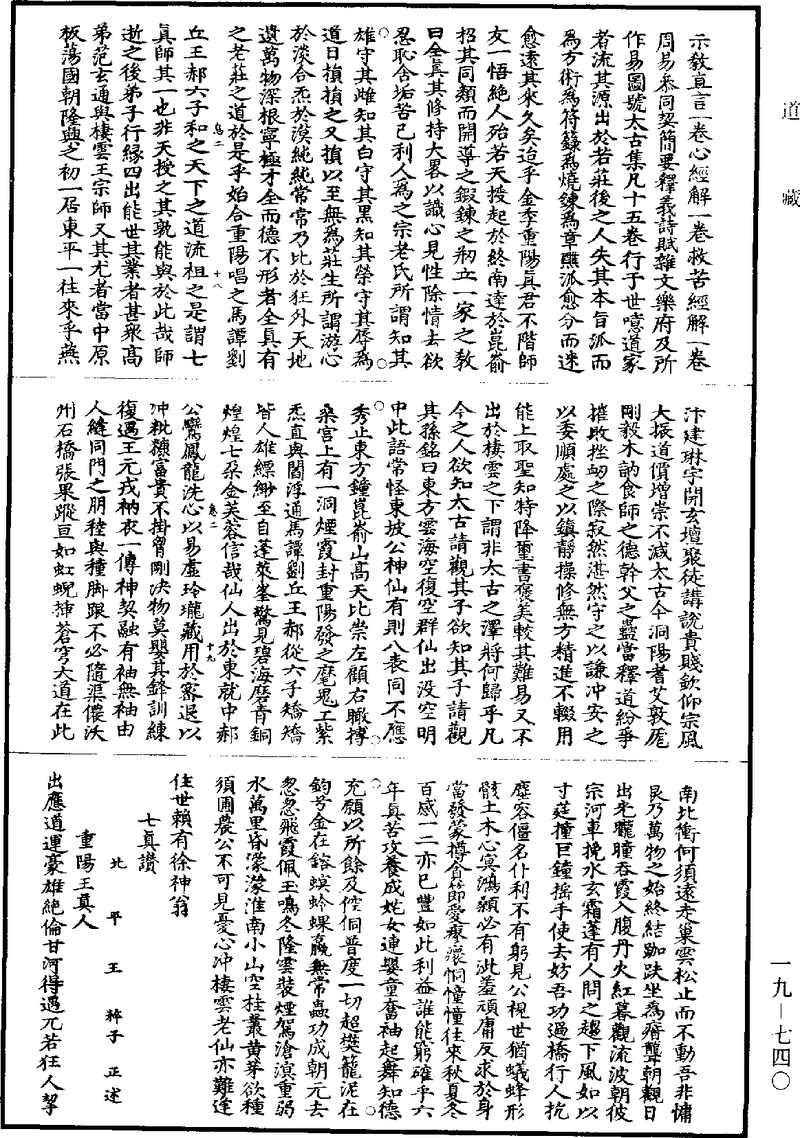 道藏
示教直言一卷心經解一卷救苦經解一卷
周易參同契簡要釋義詩賦雜文樂府及所
作易圖號太古集凡十五卷行于世噫道家
者流其源出於老莊後之人失其本旨派而
為方術為符籙為燒鍊為章醮派愈分而迷
愈遠其來久矣迨乎金季重陽真君不階師
友一悟絕人殆若天授起於終南達於崑崳
招其同類而開導之鍛鍊之刱立一家之教
曰全真其修持大畧以識心見性除情去欲
忍恥含垢苦己利人為之宗老氏所謂知其
雄守其雌知其白守其黑知其榮守其辱為
道日損損之又損以至無為莊生所謂游心
於淡合炁於漠純純常常乃比於狂外天地
遺萬物深根寧極才全而德不形者全真有
之老莊之道於是乎始合重陽唱之馬譚劉
卷二 十八
丘王郝六子和之天下之道流祖之是謂七
真師其一也非天授之其孰能與於此哉師
逝之後弟子行緣四出能世其業者甚衆高
弟范玄通與棲雲王宗師又其尤者當中原
板蕩國朝隆興之初一居東平一往來乎燕
汴建琳宇開玄壇聚徒講說貴賤欽仰宗風
大振道價增崇不減太古今洞陽者艾敦厖
剛毅木訥食師之德幹父之蠱當釋道紛爭
摧敗挫衂之際寂然湛然守之以謙冲安之
以委順處之以鎮靜操修無方精進不輟用
能上取聖知特降璽書褒美較其難易又不
出於棲雲之下謂非太古之澤將何歸乎凡
今之人欲知太古請觀其子欲知其子請觀
其孫銘曰東方雲海空復空群仙出沒空明
中此語常怪東坡公神仙有則八表同不應
秀止東方鐘崑崳山高天比崇左顧右瞰摶
桑宮上有一洞煙霞封重陽發之魔鬼工紫
炁直與閻浮通馬譚劉丘王郝從六子矯矯
皆人雄縹緲至自蓬萊峯驚見碧海磨青銅
煌煌七朵金芙蓉信哉仙人出於東就中郝
卷二 十九
公鸞鳳龍洗心以易虛玲瓏藏用於密退以
沖粃糠富貴不掛胷剛決物莫嬰其鋒訓練
復遇王元戎衲衣一傳神契融有袖無袖由
人縫同門之朋稑與穜脚跟不必隨渠儂沃
州石橋張果蹤亘如虹蜺揷蒼穹大道在此
南北衝何須遠走巢雲松止而不動吾非慵
艮乃萬物之始終結跏趺坐為瘖聾朝觀日
出光朧朣吞霞入腹丹火紅暮觀流波朝彼
宗河車挽水玄霜蓬有人問之趨下風如以
寸莛撞巨鐘搖手使去妨吾功過橋行人抗
塵容僵名仆利不有躬見公視世猶蟻蜂形
骸土木心冥鴻顙必有泚羞頑庸反求於身
當發蒙樽食節愛療瘝恫憧憧往來秋夏冬
百感一二亦已豐如此利益誰能窮確乎六
年真苦攻養成姹女連嬰童奮袖起舞知德
充願以所餘及倥侗普度一切超樊籠泥在
鈞号金在鎔螟蛉蜾蠃無常蟲功成朝元去
忽忽飛霞佩玉鳴冬隆雲裝煙駕滄溟重弱
水萬里昏濛濛淮南小山空桂叢黄芽欲種
須圃農公不可見憂心冲棲雲老仙亦難逢
住世賴有徐神翁
七真讚
北平王粹子正述
重陽王真人
出應道運豪雄絕倫甘河得遇兀若狂人挈
一九—七四〇